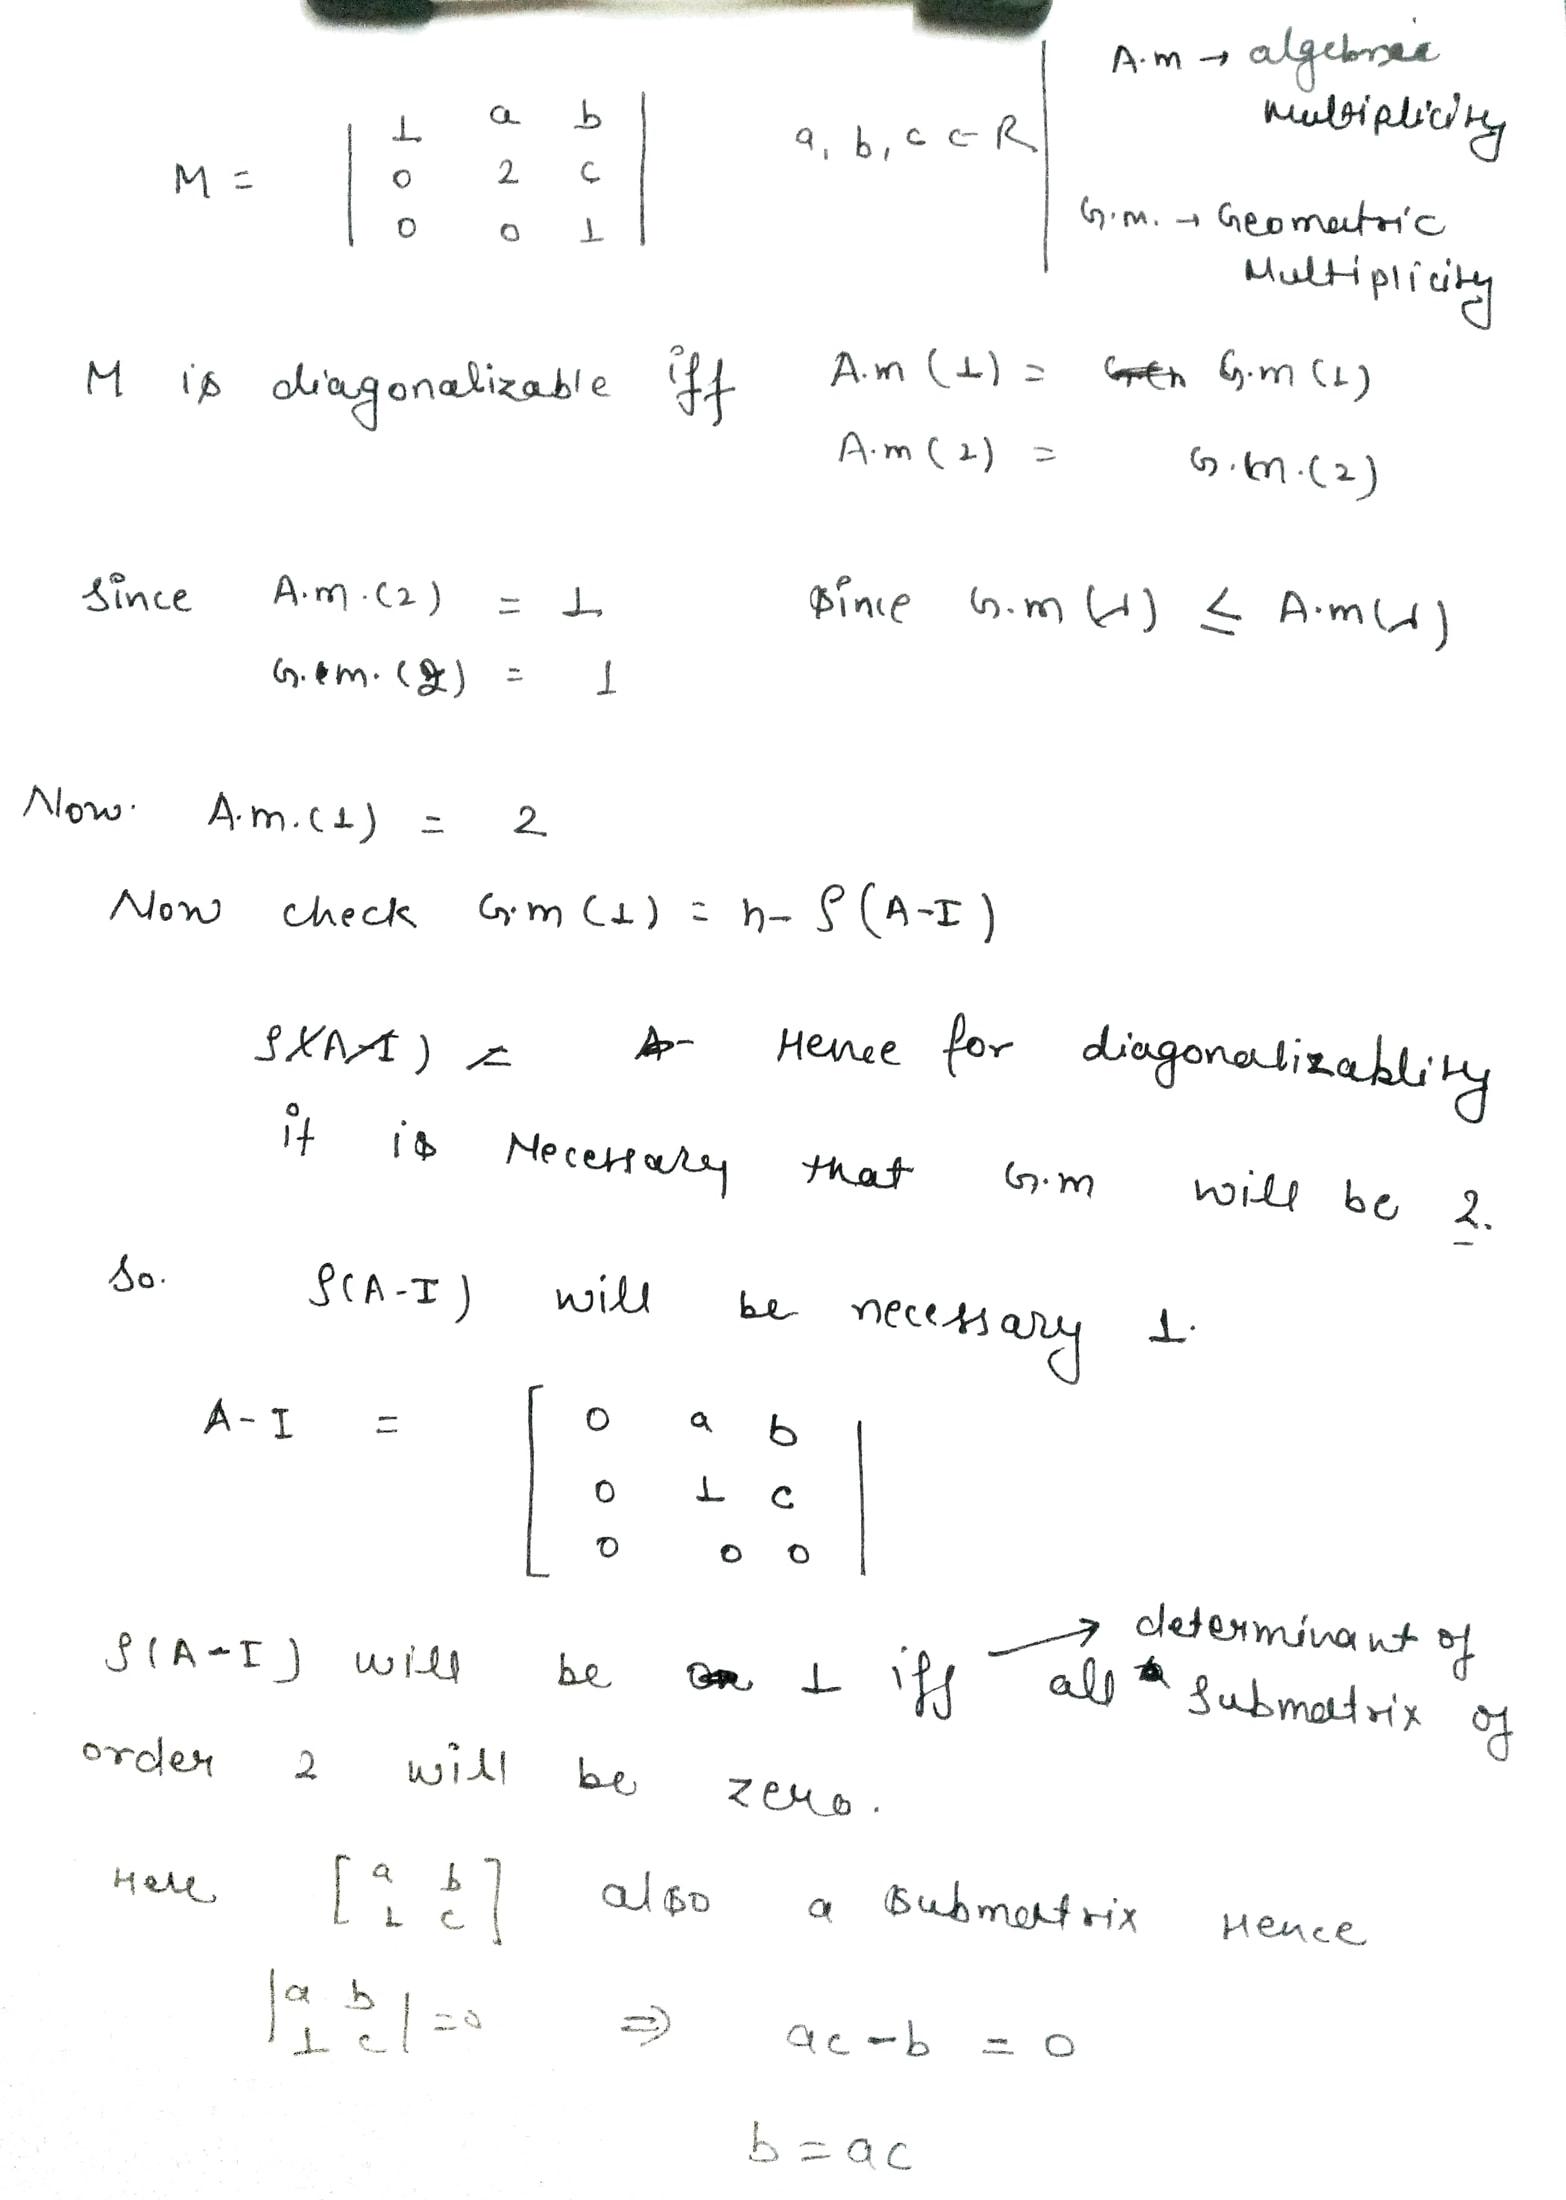 A.m → algebraic
multiplicity
G.m. → Geomeatric
Multiplicity
M = | 1 a b |
| 0 2 c |
| 0 0 1 |
a, b, c ∈ R
M is diagonalizable iff A.m (1) = G.m (1)
A.m (2) = G.m.(2)
Since A.m.(2) = 1 Since G.m (1) ≤ A.m(1)
G.m.(2) = 1
Now. A.m.(1) = 2
Now check G.m (1) = n - ρ(A-I)
Hence for diagonalizablity
it is Necessary that G.m will be 2.
So. ρ(A-I) will be necessary 1.
A-I = [ 0 a b |
0 1 c
0 0 0 |
ρ(A-I) will be 1 iff → determinant of
all submatrix of
order 2 will be zero.
Here [ a b ] also a submatrix Hence
[ 1 c ]
| a b | = 0 ⇒ ac - b = 0
| 1 c |
b = ac